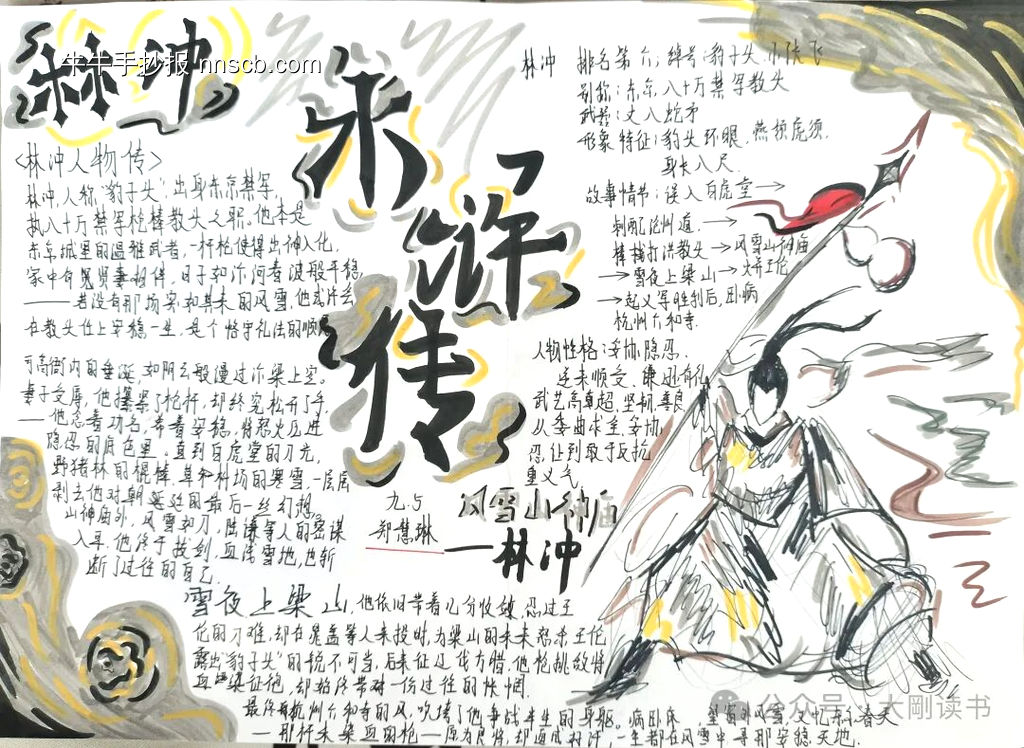 林冲
牛牛手抄报 nnscb.com
水浒传
<林冲人物传>
林冲,人称"豹子头",出身东京禁军,
执八十万禁军枪棒教头之职。他本是
东京城里的温雅武者,一杆枪使得出神入化,
家中有贤妻相伴,日子如汴河春波般平稳
——若没有那场突如其来的风雪,他或许会
在教头任上安稳一生,是个恪守礼法的顺
可高衙内的垂涎,如阴云般漫过汴梁上空。
妻子受辱,他攥紧了枪杆,却终究松开了手
——他念着功名,奔着安稳,将怒火压进
隐忍的底色里。直到白虎堂的刀光,
野猪林的棍棒,草料场的寒雪,一层层
剥去他对朝廷的最后一丝幻想。
山神庙外,风雪如刀,陆谦等人的密谋
入耳,他终于拔剑,血溅雪地,也斩
断了过往的自己。
雪夜上梁山,他依旧带着几分收敛,忍过王
伦的刁难,却在晁盖等人来投时,为梁山的未来怒杀王伦
露出"豹子头"的锐不可当。后来征辽伐方腊,他枪挑敌将
血染征袍,却始终带着一份过往的怅惘。
最终杭州六和寺的风,吹
了他争战半生的身躯。病卧床
望窗外风雪,又忆东京春天
——那杆未染血的枪——原为良将,却逼成
,一生都在风雪中寻那安稳天地。
林冲 排名第六;绰号:豹子头、小张飞
别称:东京八十万禁军教头
武器:丈八蛇矛
形象特征:豹头环眼,燕颔虎须,
身长八尺
故事情节:误入白虎堂→
刺配沧州道→
棒打洪教头→风雪山神庙
→雪夜上梁山→火并王伦
→起义军胜利后,因病
杭州六和寺
人物性格:妥协隐忍.
逆来顺受,谦逊有礼
武艺高卓超,坚韧,善良
从委曲求全、妥协,
忍让到敢于反抗
重义气
九.5
郑慧琳
风雪山神庙
—林冲
公众号·大刚读书